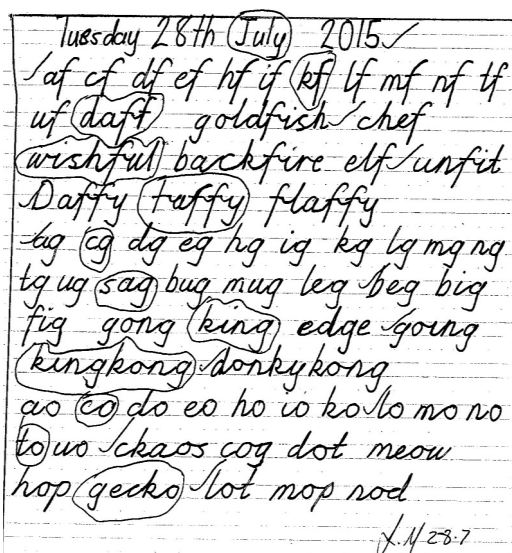 Tuesday 28th July 2015
af cf df ef hf if kf lf mf nf tf
uf daft goldfish chef
wishful backfire elf unfit
Daffy taffy flaffy
ag cg dg eg hg ig kg lg mg ng
tg ug sag bug mug leg beg big
fig gong king edge going
kingkong donkykong
ao co do eo ho io ko lo mo no
to uo ckaos cog dot meow
hop gecko lot mop nod
28.7